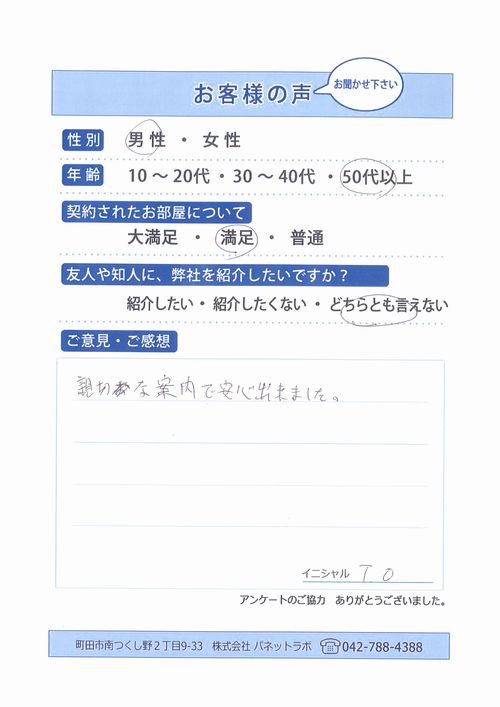 お客様の声
お聞かせ下さい
性別
男性 ・ 女性
年齢
10～20代・30～40代・50代以上
契約されたお部屋について
大満足 ・ 満足 ・ 普通
友人や知人に、弊社を紹介したいですか？
紹介したい・紹介したくない・どちらとも言えない
ご意見・ご感想
親切な案内で安心出来ました。
イニシャル T.O
アンケートのご協力 ありがとうございました。
町田市南つくし野２丁目9-33 株式会社 パネットラボ 042-788-4388